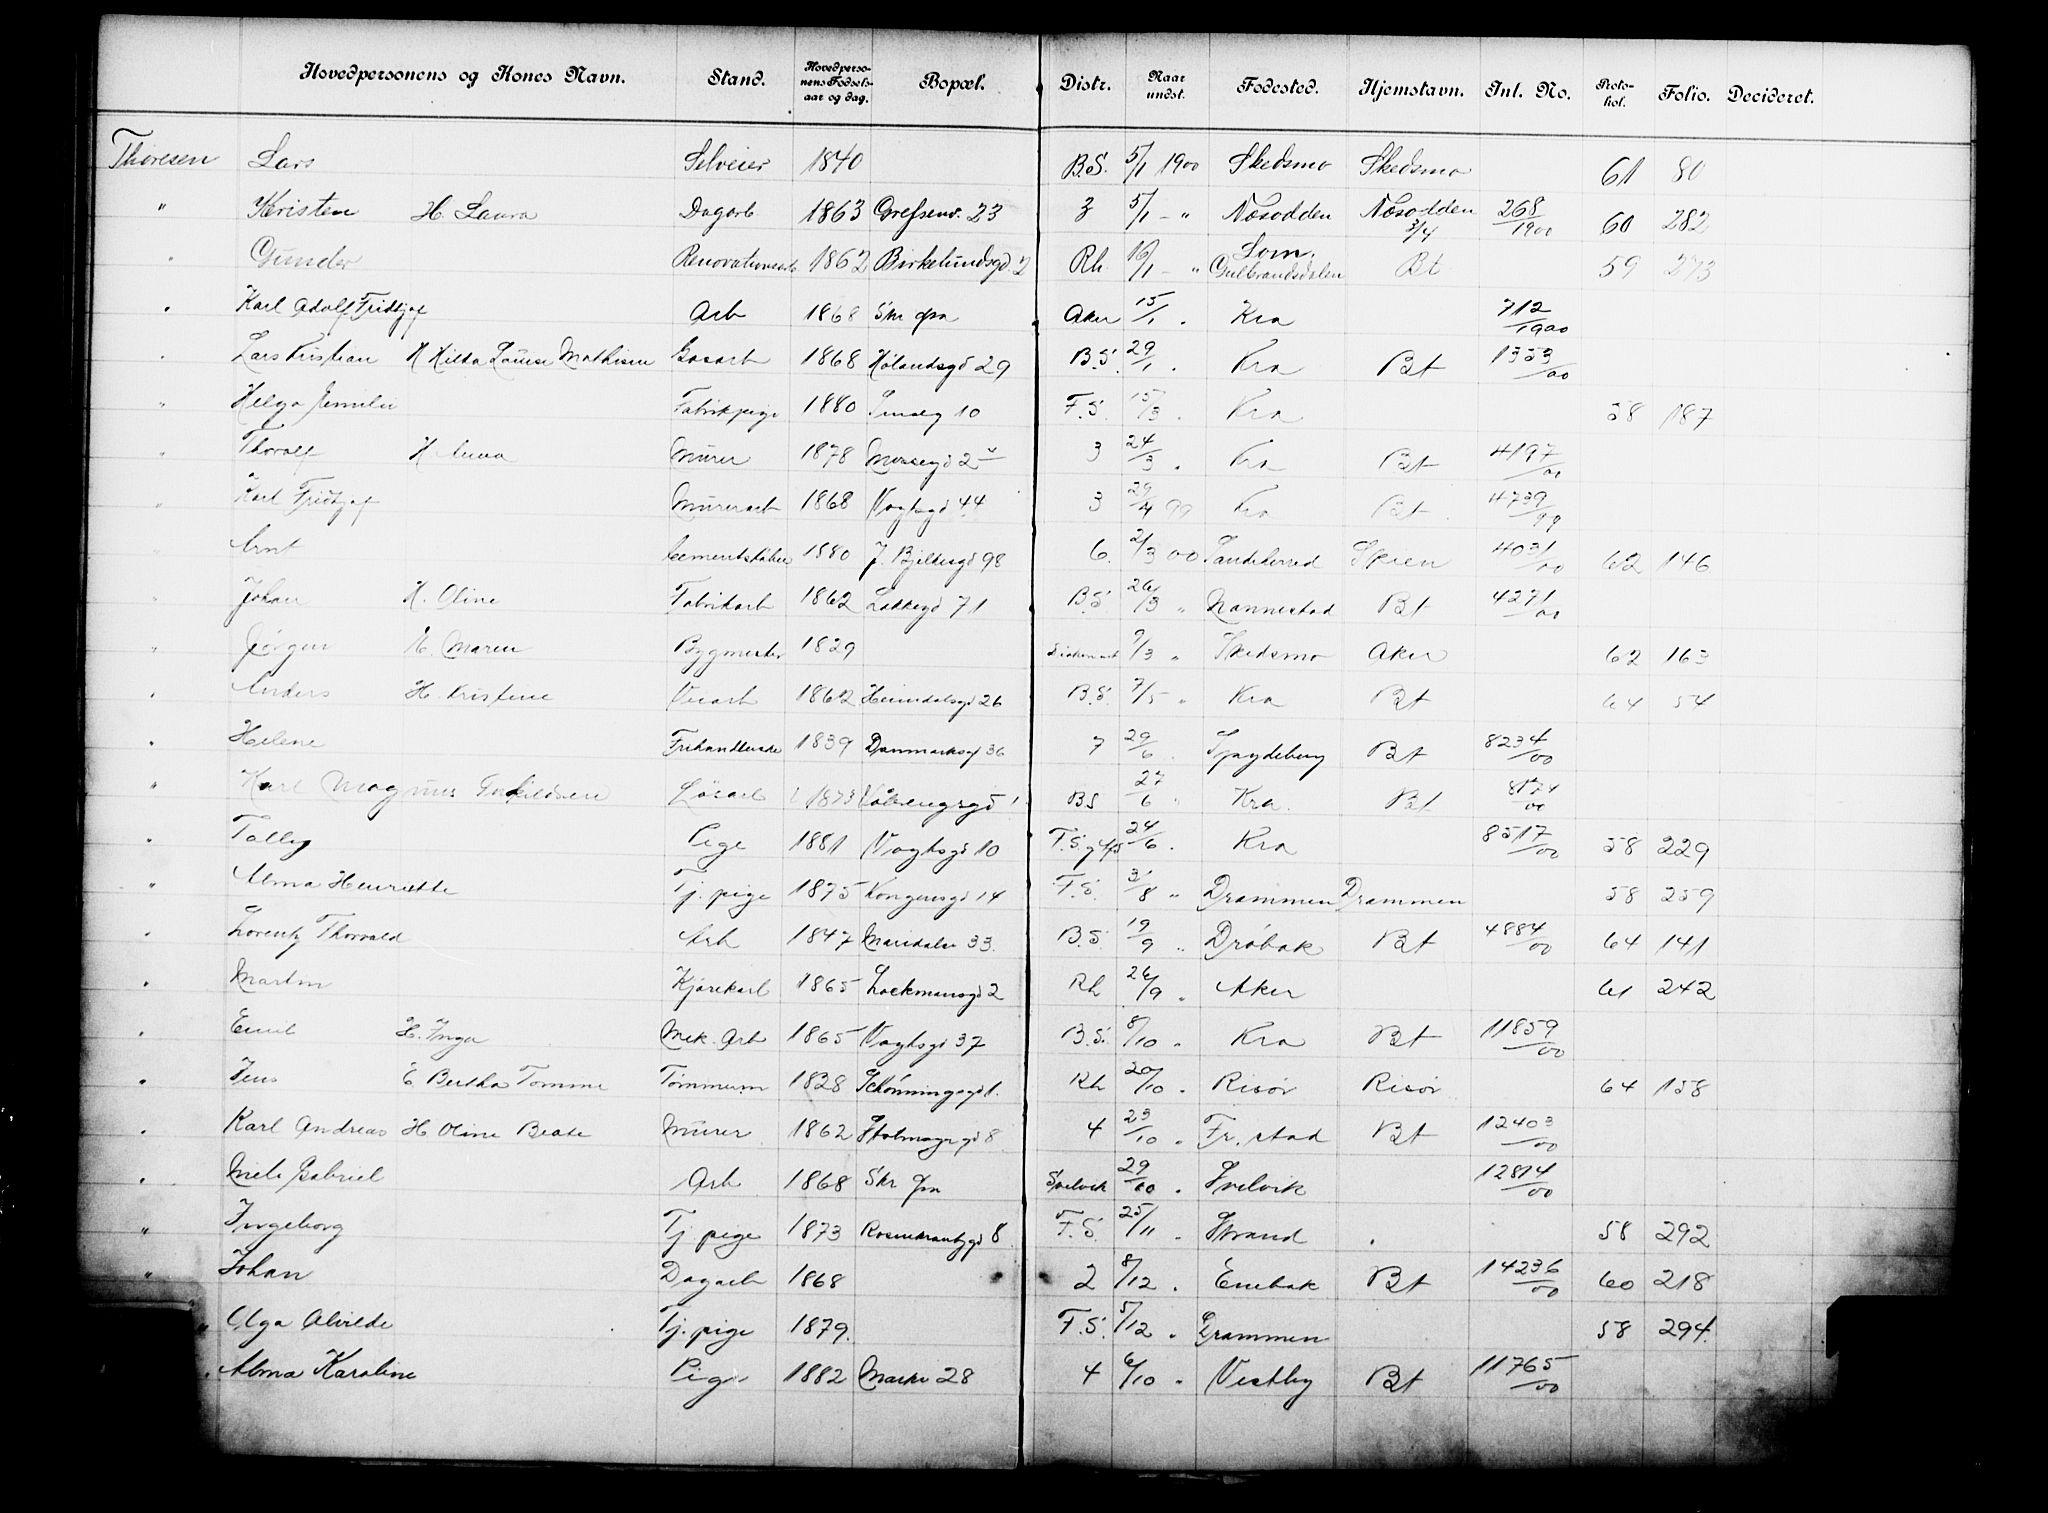 Hovedpersonens og Kones Navn. Stand. Hovedpersonens Fødselsaar og dag. Bopæl. Distr. Naar undst. Fødested. Hjemstavn. Inl. No. Protokol. Folio. Decideret.
Thoresen Lars Selveier 1840 B.S. 5/1 1900 Skedsmo Skedsmo 61 80
" Kristen H. Laura Dagarb. 1863 Grefsenv. 23 3 5/1 - " Næsodden Næsodden 3/4 268/1900 60 282
" Gunder Renovationsarb 1862 Birkelundsgd 2 Rh. 16/1 - " Lom. Gulbrandsdalen Bt 59 273
" Karl Adolf Fridtjof Arb 1868 Skr Aker 15/1 " Kra 712/1900
" Lars Kristian H Hilda Louise Mathisen Gasarb 1868 Hølandsgd 29 B.S. 29/1 " Kra Bt 1353/00
" Helga Emilie Fabrikpige 1880 10 F.S. 15/3 " Kra 58 187
" Thoralf H Anna Murer 1878 Mossegd 2 3 24/3 " Kra Bt 4197/00
" Karl Fridtjof Murerarb 1868 Vogtsgd 44 3 29/4 99 Kra Bt 4739/99
" Arnt Cementstøber 1880 J. Bjelkesgd 98 6. 2/3 00 Sandeherred Skien 4031/00 62 146
" Johan H. Oline Fabrikarb 1862 Lakkegd 71 B.S. 26/3 " Nannestad Bt 4271/00
" Jørgen E. Maren Bygmester 1829 9/3 " Skedsmo Aker 62 163
" Anders H. Kristine Veiarb 1862 Heimdalsgd 26 B.S. 7/5 " Kra Bt 64 54
" Helene Frihandlerske 1839 Danmarksgd 36 7 29/6 Spydeberg Bt 8234/00
" Karl Magnus Torkildsen Løsarb 1873 Vålerengsgd 1 BS 27/6 " Kra. Bt 8174/00
" Tolley Pige 1881 Vogtsgd 10 F.S. 24/6 " Kra 8517/00 58 229
" Alma Henriette Tj. pige 1875 Kongensgd 14 F.S. 3/8 " Drammen Drammen 58 259
" Lorentz Thorvald Arb 1847 Maridalsv 33. B.S. 19/9 " Drøbak Bt 4884/00 64 141
" Martin Kjørekarl 1865 Lockmansgd 2 Rh 26/9 " Aker 61 242
" Emil H. Inga Mek. Arb 1865 Vogtsgd 37 B.S. 8/10 " Kra Bt 11859/00
" Jens E Bertha Tomine Tømmerm 1828 Schønningsgd 1. Rh 20/10 " Risør Risør 64 158
" Karl Andreas H Oline Beate Murer 1862 Stolmagergd 8 4 23/10 " Fr. stad Bt 12403/00
" Niels Gabriel Arb 1868 Skr Svelvik 29/10 " Svelvik 12814/00
" Ingeborg Tj. pige 1873 Rosenkrantzgd 8 F.S. 25/11 " Strand " 58 292
" Johan Dagarb 1868 2 8/12 " Enebak Bt 14236/00 60 218
" Olga Alvilde Tj. pige 1879. F.S. 5/12 " Drammen 58 294.
" Alma Karoline Pige 1882 Markv 28 4 6/10 " Vestby Bt 11765/00